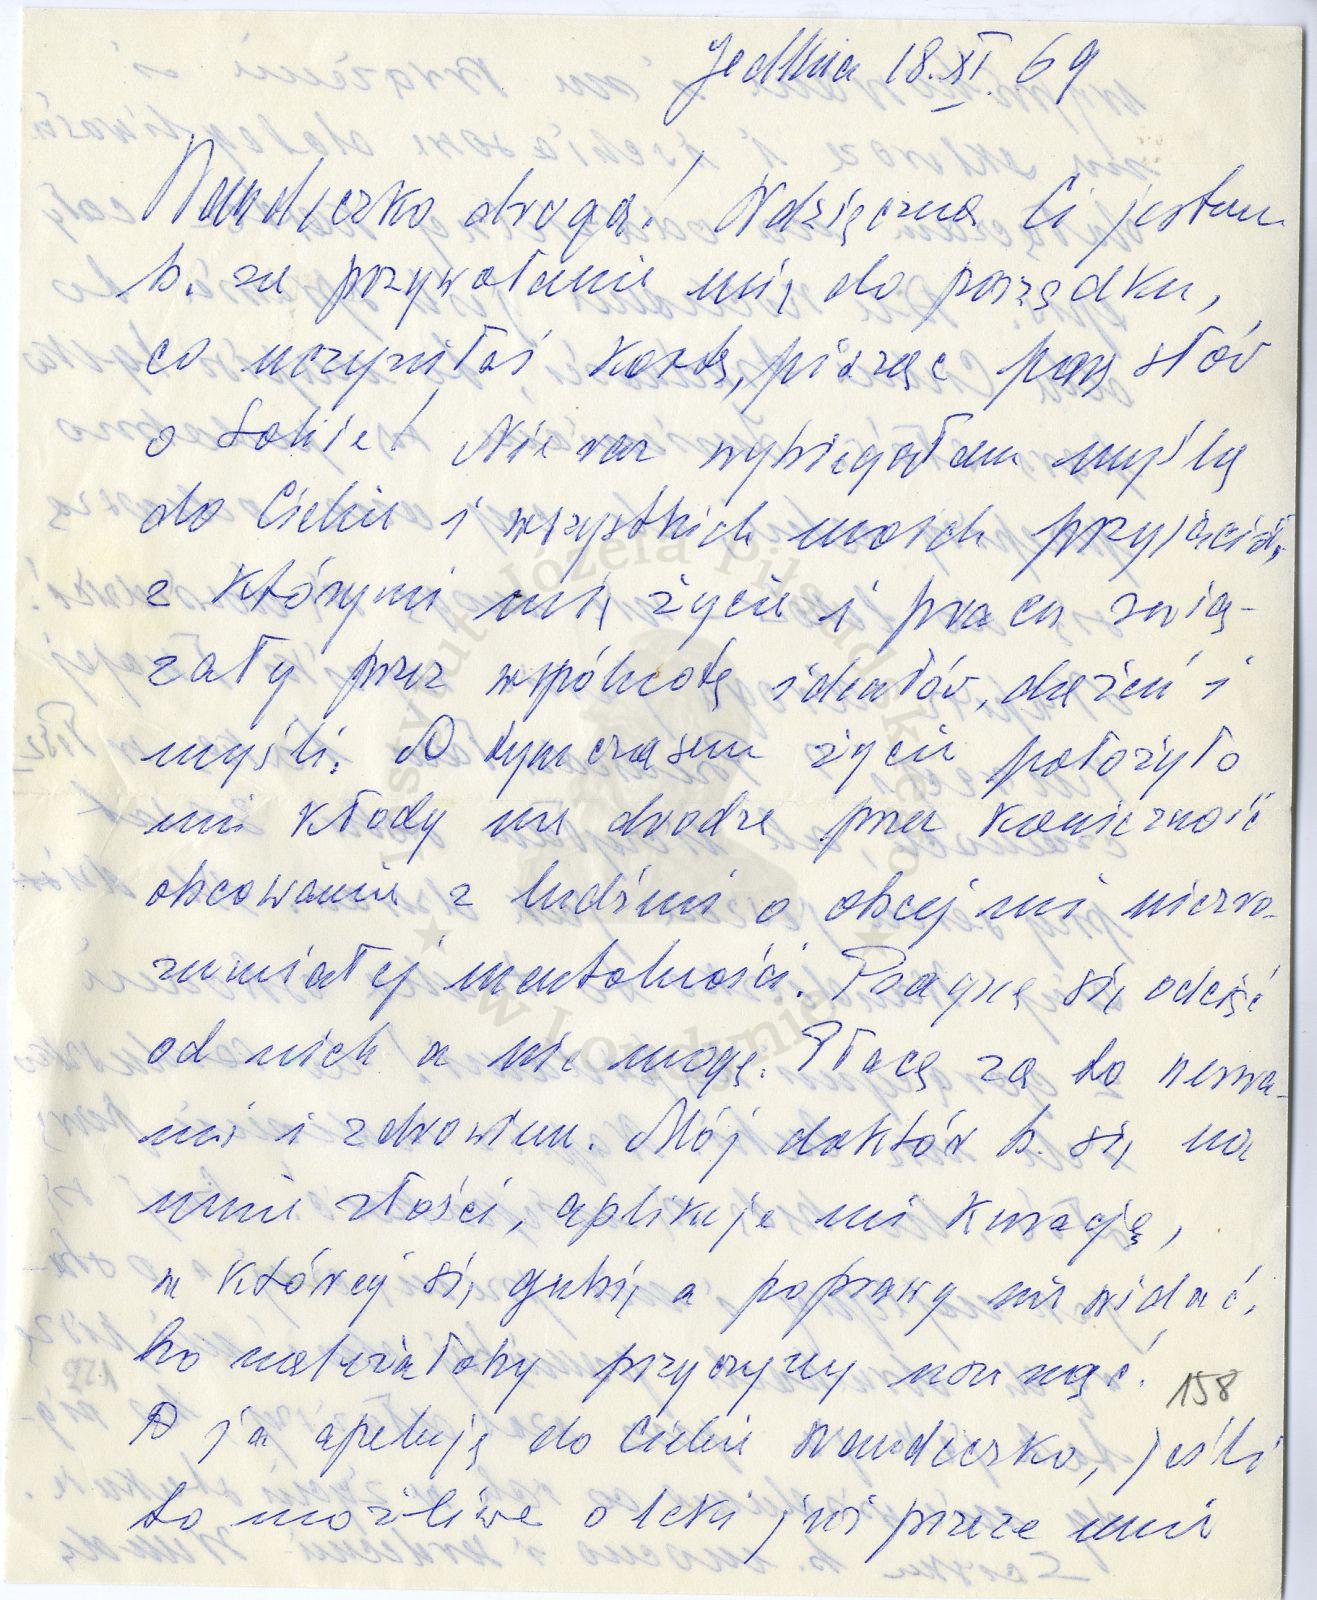 Jedlnia 18.XI.69
Wandeczko droga! Wdzięczna Ci jestem
b. za przywołanie mię do porządku,
co uczyniłaś kartą, pisząc parę słów
o Sobie! Nie raz wybiegałam myślą
do Ciebie i wszystkich moich przyjaciół,
z którymi mię życie i praca zwią-
zały przez wspólnotę ideałów, dążeń i
myśli. A tymczasem życie położyło
mi kłody na drodze przez konieczność
obcowania z ludźmi o obcej mi niezro-
zumiałej mentalności. Pragnę się odciąć
od nich a nie mogę. Płacę za to nerwa-
mi i zdrowiem. Mój doktór b. się na
mnie złości, aplikuje mi kurację,
w której się gubię a poprawy nie widać,
bo należałoby przyczyny usunąć.
158
A ja apeluję do Ciebie Wandeczko, jeśli
to możliwe o leki już przeze mnie
Instytut Józefa Piłsudskiego
w Londynie